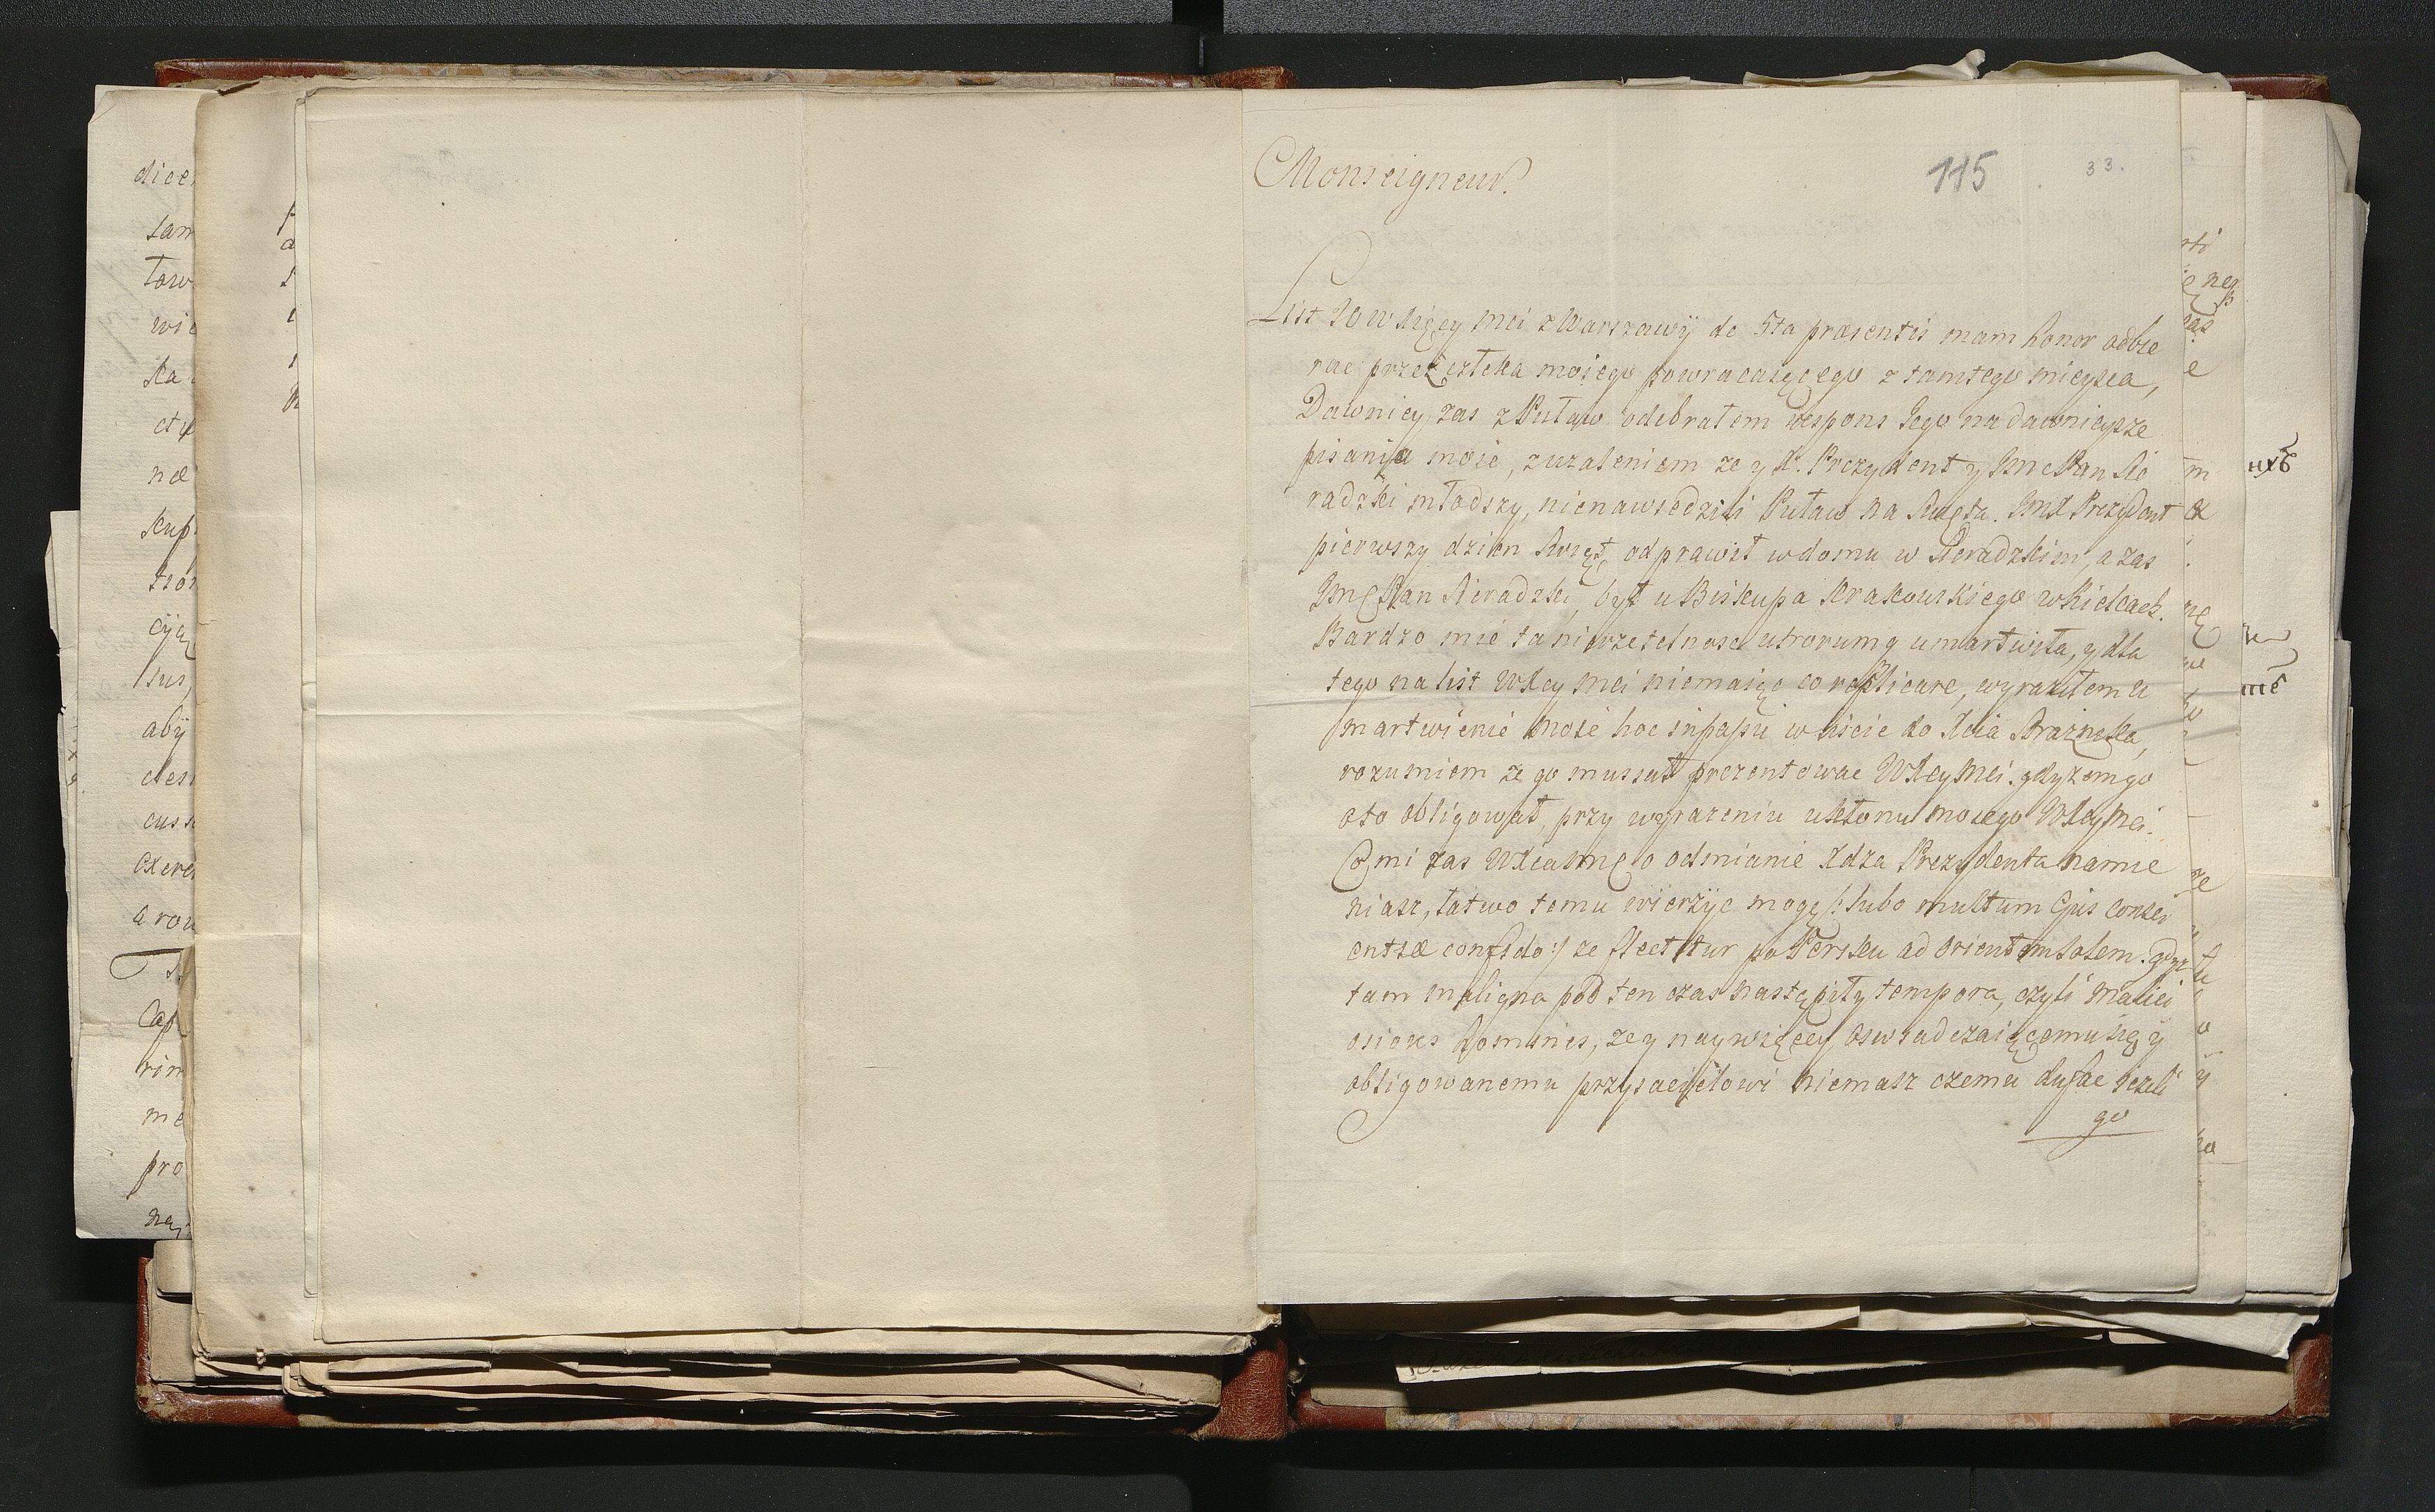 Monseigneur.
115
33.
List JOWXięcy Mei z Warszawÿ de 5ta præsentis mam honor odbie
rac przez czteka moiego powracaięcego z tamtego mieysca,
Dawniey zas z Puław odebratem respons Jego na dawnieysze
pisania moie, z uzaleniem ze y X. Prezydent y JmcPan Sie
radzki młodszy, nienawiedzili Puław na Swięta. JmX Prezydent
pierwszy dzien Swięt odprawił w domu w Sieradzkim, a zas
JmcPan Sieradzki, był u Biskupa Krakowskiego w Kielcach.
Bardzo mie ta nierzetelnosc utrorumq umartwiła, y dla
tego na list WXcy Mei niemaięc co replicare, wyrazitem u
martwienie moie hoc in passu w liscie do Xcia
rozumiem ze go mussiał prezentowac WXcy Mei. gdyzem go
oto obligował, przy wyrazeniu ukłonu moiego WXcy Mei.
Co mi zas WXca o odmianie Xdza Prezydenta namie
niasz, łatwo temu wierzÿc mogę /: lubo multum Ejus consci
entiæ confido :/ ze flectitur po Persku ad orientem solem. gdyz
tam maligna pod ten czas nastąpiły tempora, czyli malici
osiores homines, ze y naywięcey oswiadczaięcemu się ÿ
obligowanemu przyiacielowi niemasz czemu dufac iezeli
go
dicen
tam
wie
ctu
næ
skup
cÿą
sus,
abÿ
cuss
exerc
a rou
Cap
rim
me
pro